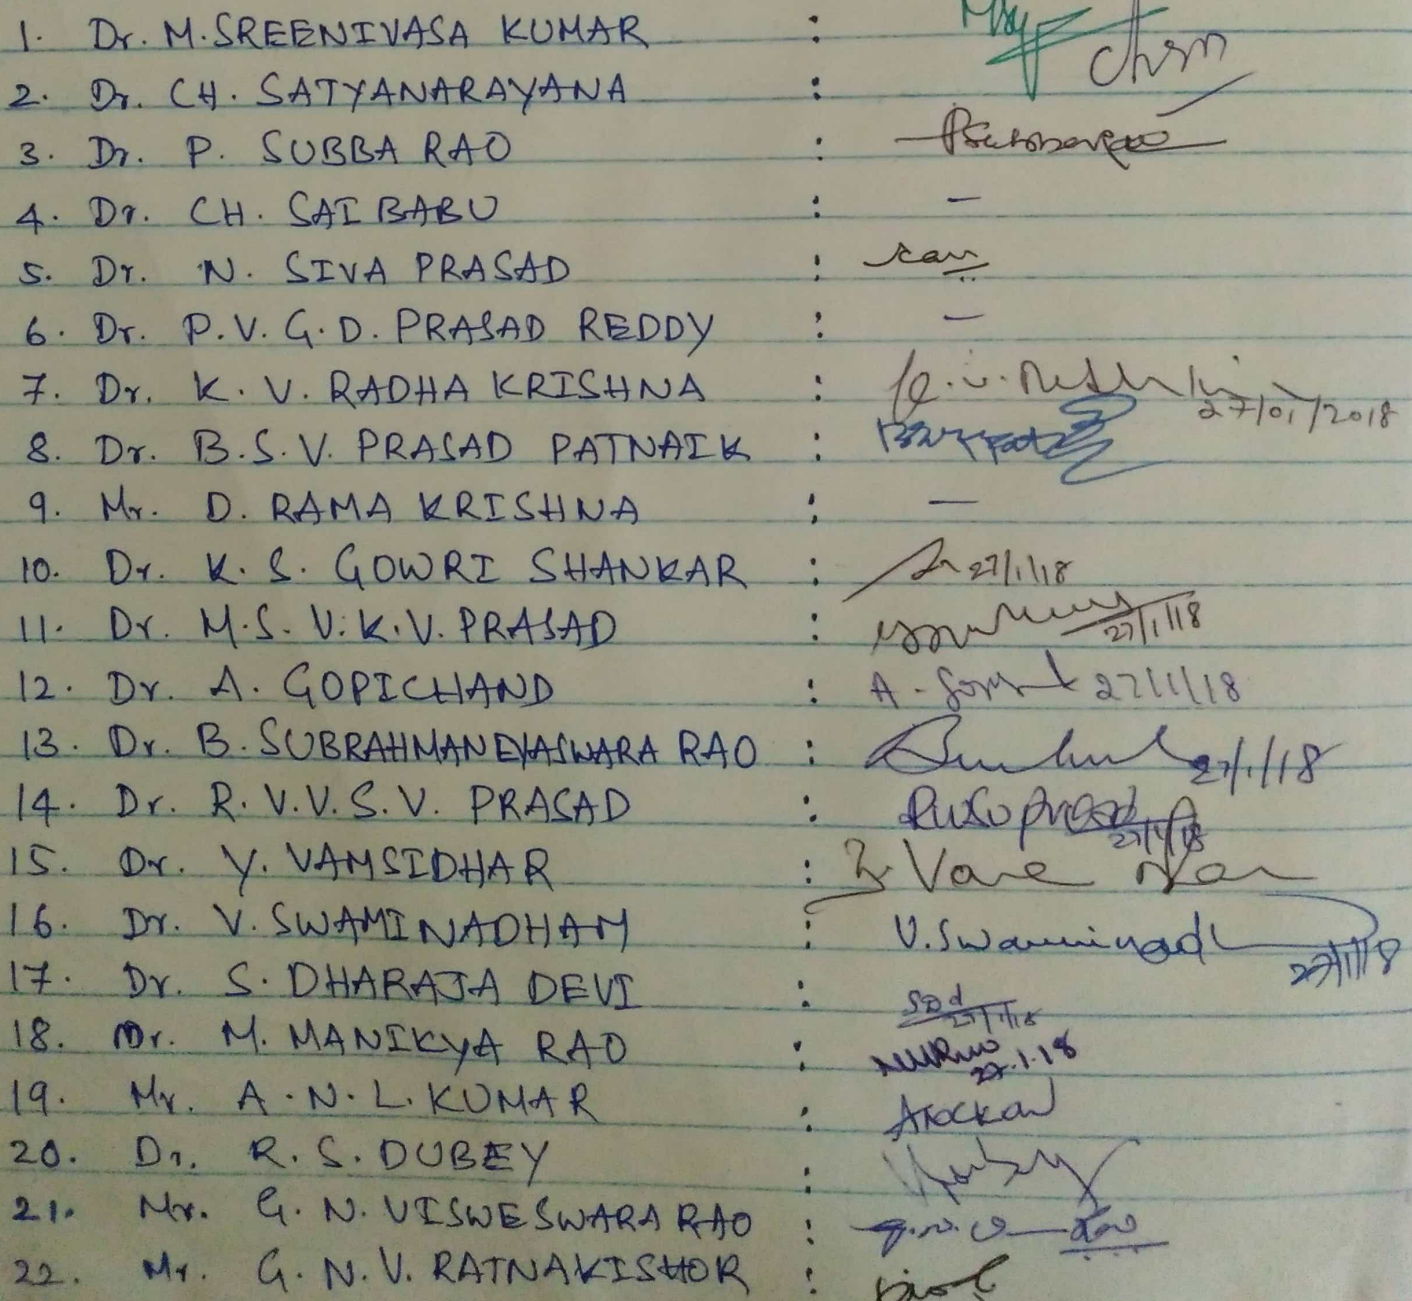 1. Dr. M. SREENIVASA KUMAR :
2. Dr. CH. SATYANARAYANA : Chsn
3. Dr. P. SUBBA RAO : PSubbarao
4. Dr. CH. SAI BABU : —
5. Dr. N. SIVA PRASAD :
6. Dr. P.V.G.D. PRASAD REDDY : —
7. Dr. K. V. RADHA KRISHNA : 27/01/2018
8. Dr. B.S.V. PRASAD PATNAIK :
9. Mr. D. RAMA KRISHNA : —
10. Dr. K. S. GOWRI SHANKAR : 27/1/18
11. Dr. M.S.V.K.V. PRASAD : 27/1/18
12. Dr. A. GOPICHAND : A. 27/1/18
13. Dr. B. SUBRAHMANEYASWARA RAO : 27/1/18
14. Dr. R.V.V.S.V. PRASAD : 27/1/18
15. Dr. Y. VAMSIDHAR :
16. Dr. V. SWAMINADHAM : V. Swaminadh 27/1/18
17. Dr. S. DHARAJA DEVI : SDd 27/1/18
18. Mr. M. MANIKYA RAO : 27.1.18
19. Mr. A.N.L. KUMAR :
20. Dr. R.S. DUBEY :
21. Mr. G.N. VISWESWARA RAO :
22. Mr. G.N.V. RATNAKISHOR :